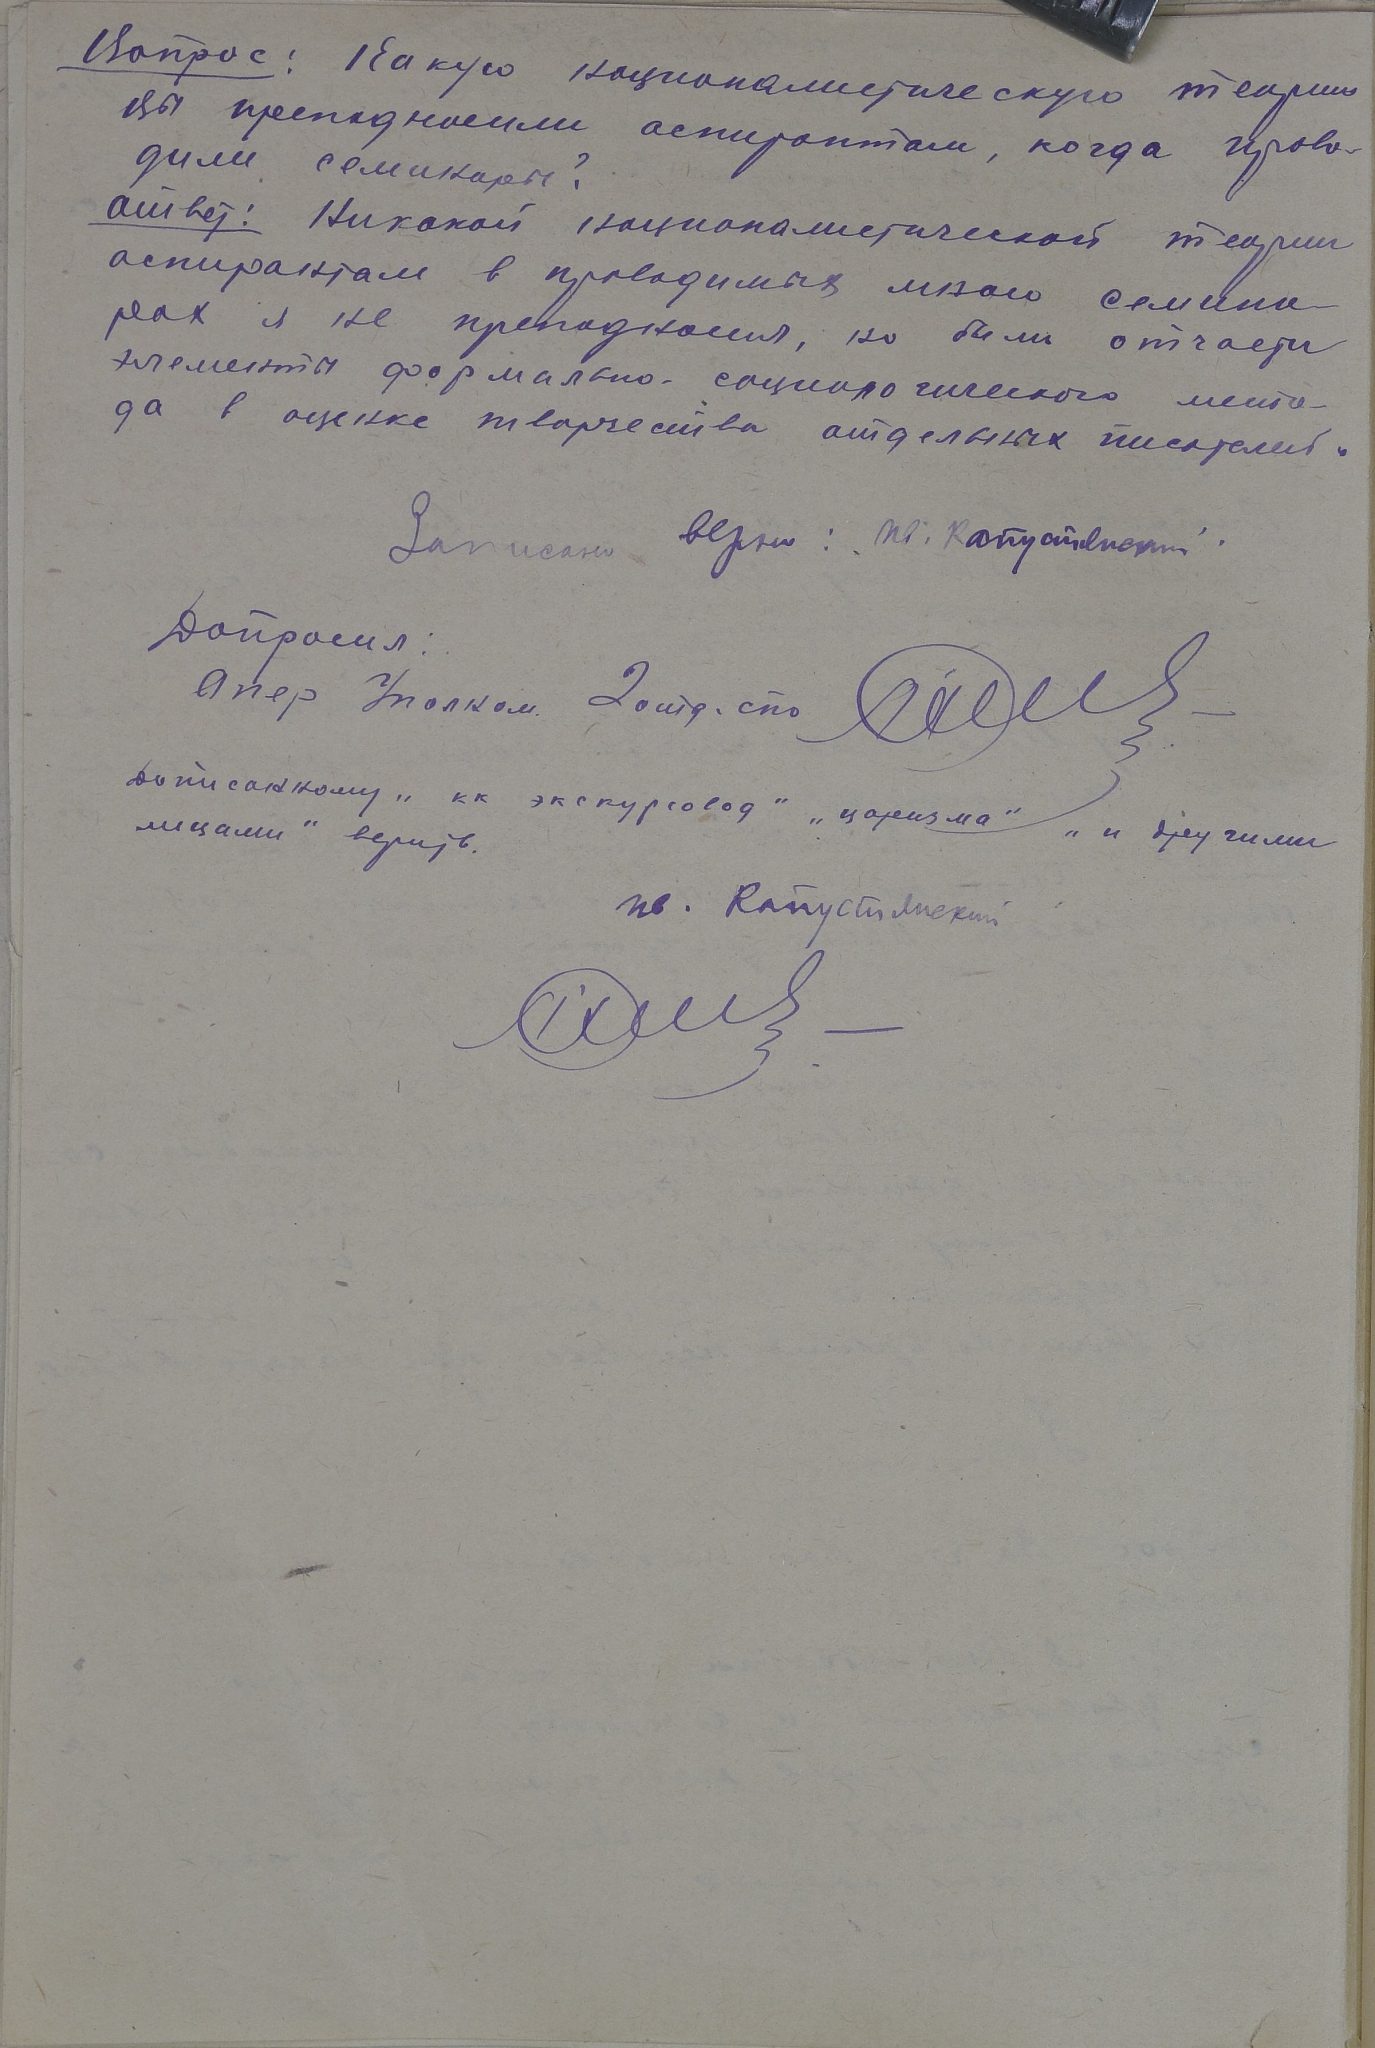 Вопрос: Какую националистическую теорию
Вы преподносили аспирантам, когда прово-
дили семинары?
Ответ: Никакой националистической теории
аспирантам в проводимых мною семина-
рах я не преподносил, но были отчасти
элементы формально-социологического мето-
да в оценке творчества отдельных писателей.
Записано верно: Ив. Капустянский.
Допросил:
Опер Уполном. 2 отд. СПО
Дописанному „кк экскурсовод" „царизма" „и другими
лицами" верить.
Ив. Капустянский